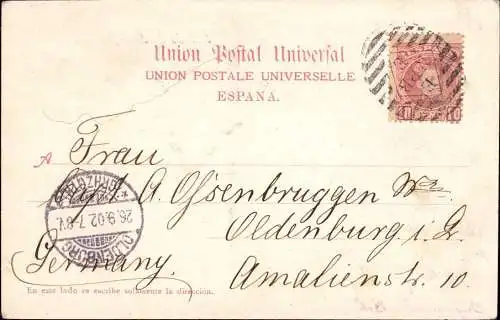 Union Postal Universal
UNION POSTALE UNIVERSELLE
ESPAÑA.
10 10
A Frau
A. Ossenbruggen Wwe
Oldenburg i. Gr.
Germany. Amalienstr. 10.
OLDENBURG
26.9.02.7-8V.
En este lado se escribe solamente la dirección.